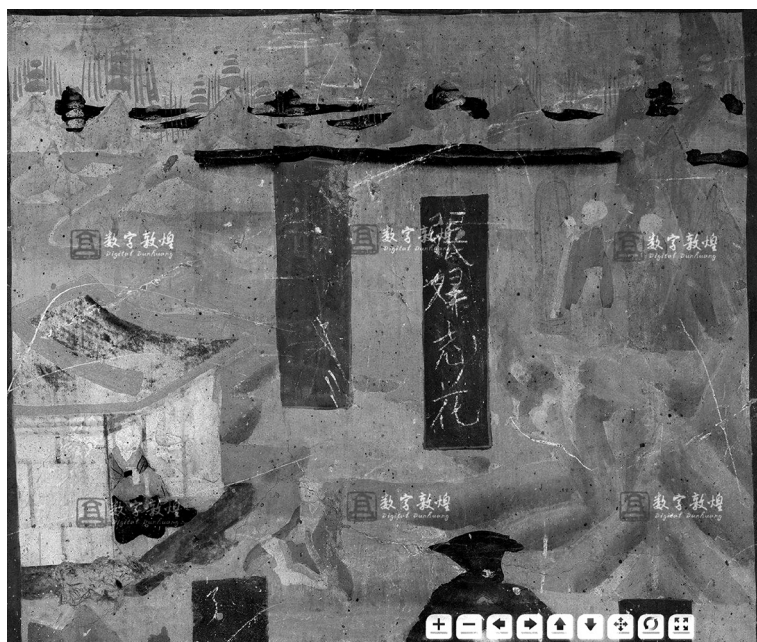 数字敦煌
Digital Dunhuang
数字敦煌
Digital Dunhuang
数字敦煌
Digital Dunhuang
張 花
数字敦煌
Digital Dunhuang
数字敦煌
Digital Dunhuang
数字敦煌
Digital Dunhuang